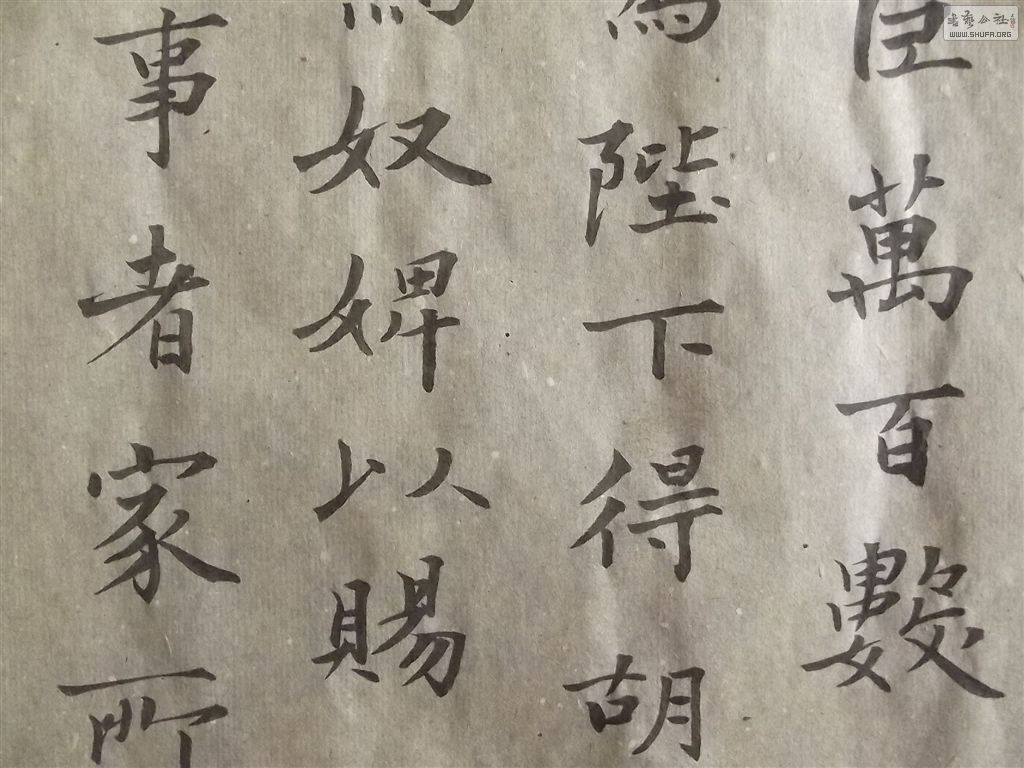 臣萬百數
為陛下得胡
為奴婢以賜
事者家所
書藝公社
WWW.SHUFA.ORG